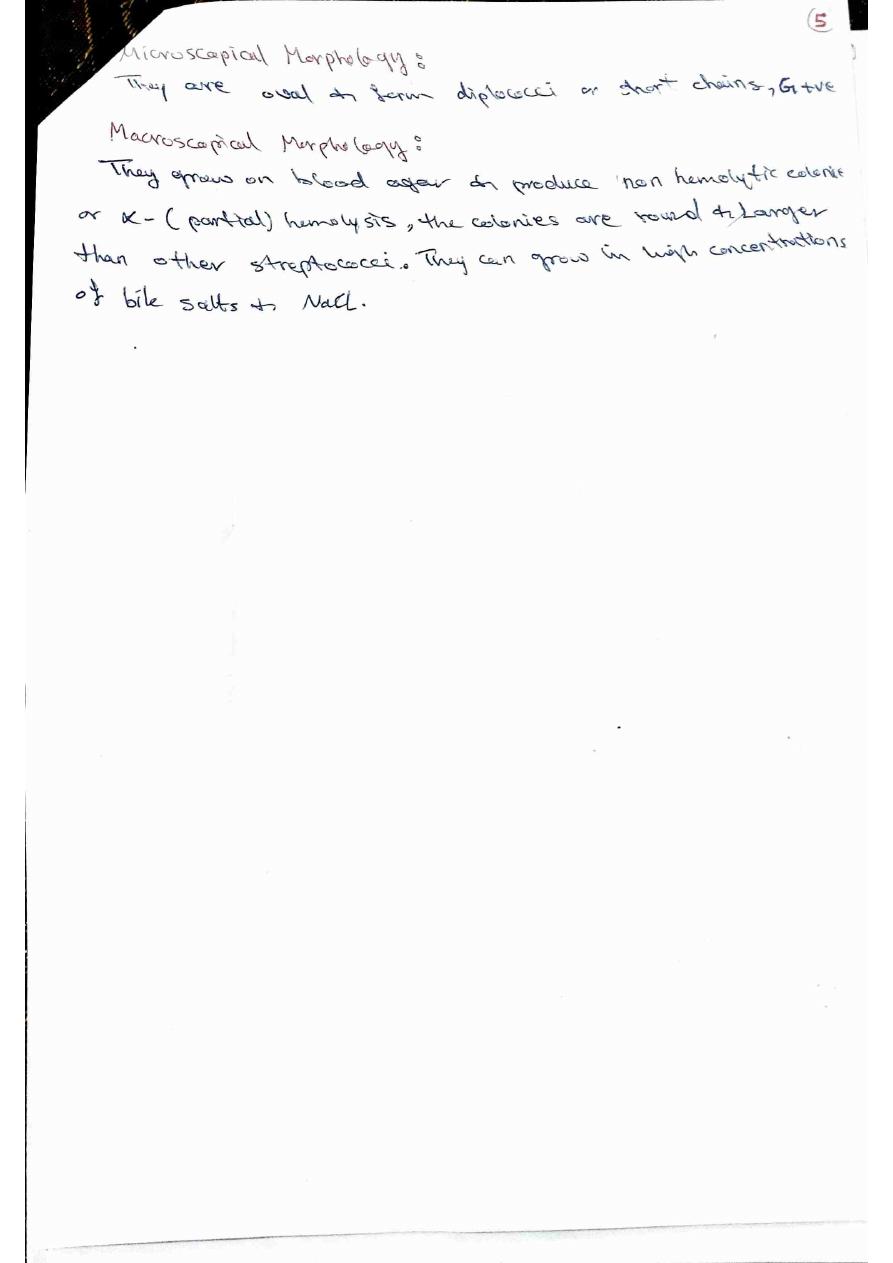 5
Microscopical Morphology:
They are oval & form diplococci or short chains, G+ve
Macroscopical Morphology:
They grow on blood agar & produce non hemolytic colonie
or α-(partial) hemolysis, the colonies are round & Larger
than other streptococci. They can grow in high concentrations
of bile salts & NaCl.